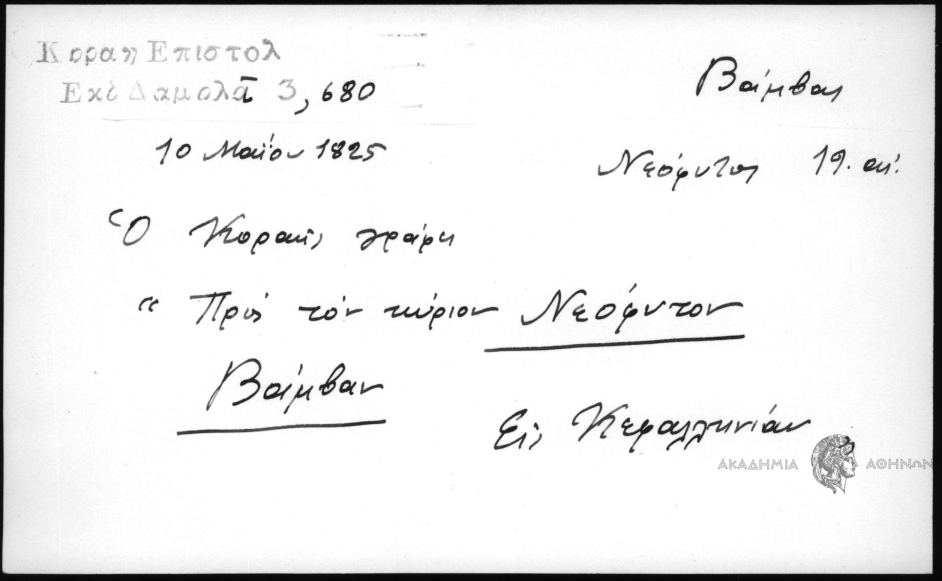 Κοραη Επιστολ
Εκδ Δαμαλᾶ 3, 680
10 Μαΐου 1825
Βάμβας
Νεόφυτος 19. αἰ.
Ὁ Κοραῆς γράφει
“ Πρὸς τὸν κύριον Νεόφυτον
Βάμβαν
Εἰς Κεφαλληνίαν
ΑΚΑΔΗΜΙΑ ΑΘΗΝΩΝ